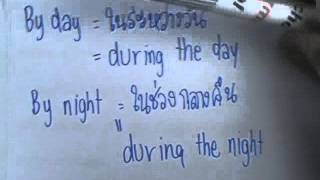 By day = ในระหว่างวัน
= during the day
By night = ในช่วงกลางคืน
"
during the night